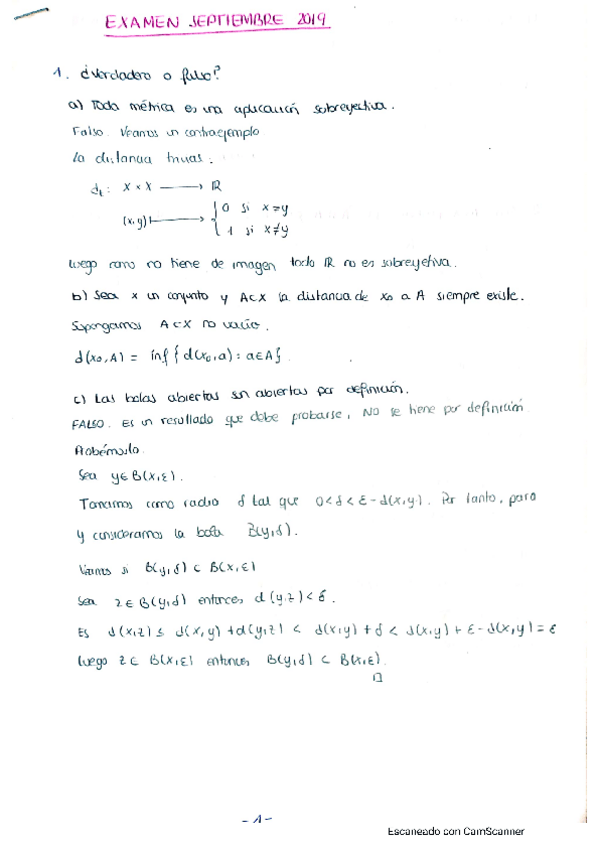 EXAMEN SEPTIEMBRE 2019
1. ¿Verdadero o falso?
a) Toda métrica es una aplicación sobreyectiva.
Falso. Veamos un contraejemplo
la distancia
d₁: X × X → ℝ
(x,y) ↦ { 0 si x=y
1 si x≠y
luego como no tiene de imagen todo ℝ no es sobreyectiva.
b) Sea x un conjunto y A⊂X la distancia de x₀ a A siempre existe.
Supongamos A⊂X no vacío.
d(x₀,A) = inf{d(x₀,a): a∈A}
c) Las bolas abiertas son abiertas por definición.
FALSO. Es un resultado que debe probarse, NO se tiene por definición.
Probémoslo.
Sea y∈B(x,ε).
Tomamos como radio δ tal que 0<δ<ε-d(x,y). Por tanto, para
y consideramos la bola B(y,δ).
Veamos si B(y,δ) ⊂ B(x,ε)
Sea z∈B(y,δ) entonces d(y,z)<δ.
Es d(x,z) ≤ d(x,y)+d(y,z) < d(x,y)+δ < d(x,y)+ε-d(x,y)=ε
luego z∈B(x,ε) entonces B(y,δ) ⊂ B(x,ε).
□
-1-
Escaneado con CamScanner